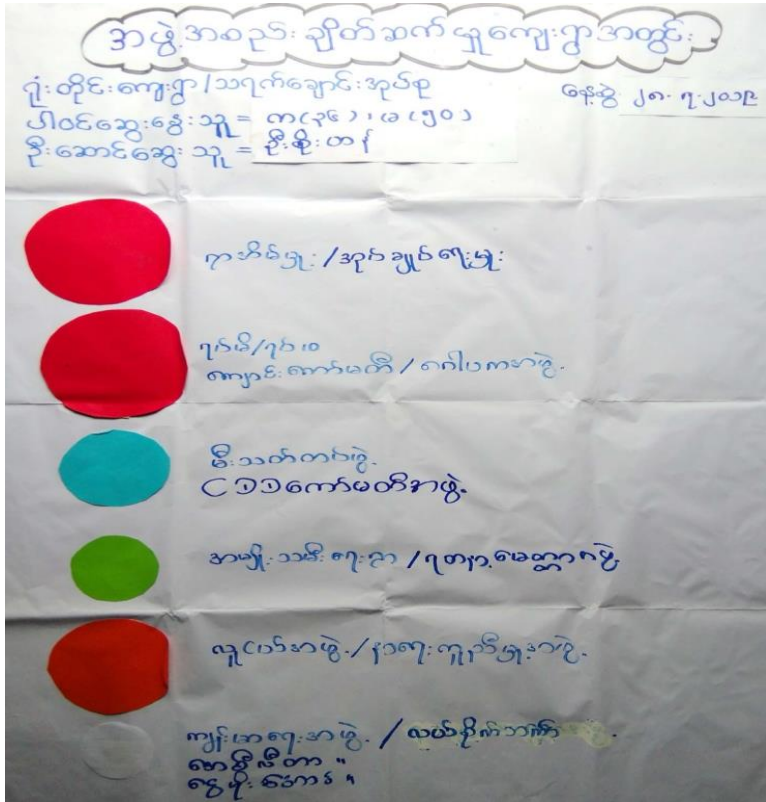 အဖွဲ့အစည်းချိတ်ဆက်မှုကျေးရွာအတွင်း
ရုံးတိုင်းကျေးရွာ/သရက်ချောင်းအုပ်စု
နေ့စွဲ ၂၈.၇.၂၀၁၉
ပါဝင်ဆွေးနွေးသူ = ကျ(၃၆)၊ မ(၅၀)
ဦးဆောင်ဆွေးသူ = ဦးစိုးတန်
ရာအိမ်မှုး/အုပ်ချုပ်ရေးမှုး
ရပ်မိ/ရပ်ဖ
ကျောင်းကော်မတီ/ဂေါပကအဖွဲ့
မီးသတ်တပ်ဖွဲ့
CDDကော်မတီအဖွဲ့
အမျိုးသမီးရေးရာ/ရတနာ့မေတ္တာအဖွဲ့
လူငယ်အဖွဲ့/နာရေးကူညီမှုအဖွဲ့
ကျန်းမာရေးအဖွဲ့/လယ်စိုက်ဘဏ်
"
"